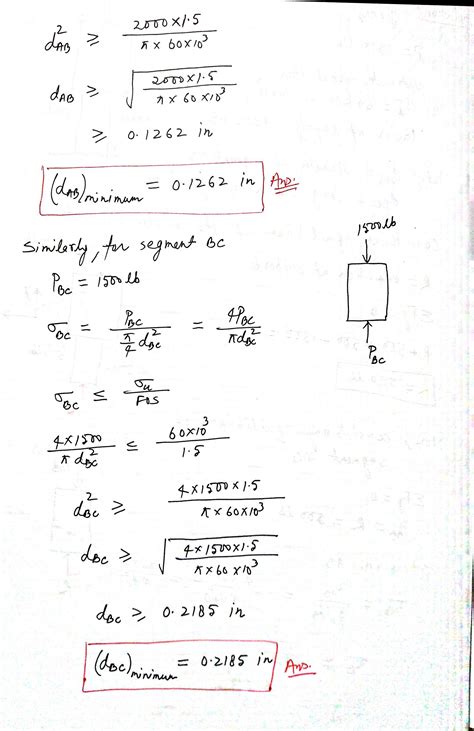 d²_AB ≥ 2000×1.5 / π×60×10³
d_AB ≥ √(2000×1.5 / π×60×10³)
≥ 0.1262 in
(d_AB)_minimum = 0.1262 in Ans.
Similarly, for segment BC
P_BC = 1500 lb
1500 lb
σ_BC = P_BC / (π/4 d²_BC) = 4P_BC / πd²_BC
P_BC
σ_BC ≤ σ_u / FOS
4×1500 / π d²_BC ≤ 60×10³ / 1.5
d²_BC ≥ 4×1500×1.5 / π×60×10³
d_BC ≥ √(4×1500×1.5 / π×60×10³)
d_BC ≥ 0.2185 in
(d_BC)_minimum = 0.2185 in Ans.